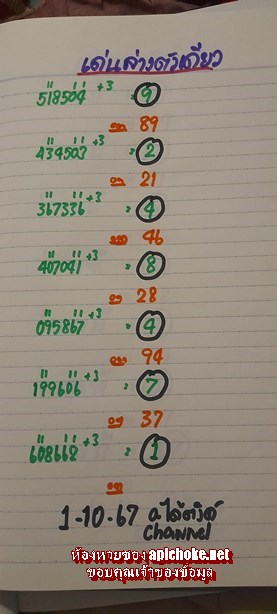 เด่นล่างตัวเดียว
518504 +3 = 9
ออก 89
434503 +3 = 2
ออก 21
367336 +3 = 4
ออก 46
407041 +3 = 8
ออก 28
095867 +3 = 4
ออก 94
199606 +3 = 7
ออก 37
608662 +3 = 1
ออก
1-10-67
Channel
ห้องหวยของ apichoke.net
ขอบคุณเจ้าของข้อมูล